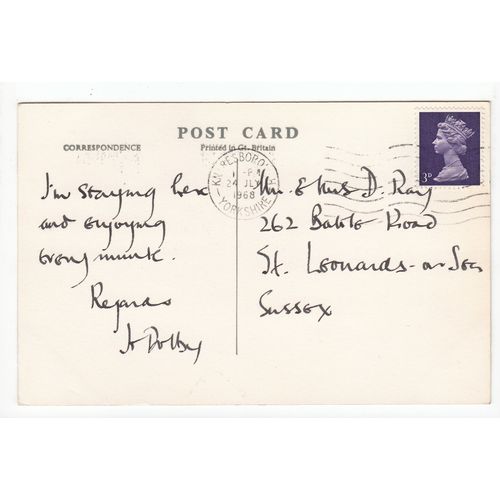 POST CARD
CORRESPONDENCE
Printed in Gt. Britain
KNARESBOROUGH
-PM
24 JLY
1968
YORKSHIRE
3D
I'm staying here
and enjoying
every minute.
Regards
A Dolby
Mr. & Mrs D. Ray
262 Battle Road
St. Leonards-on-Sea
Sussex